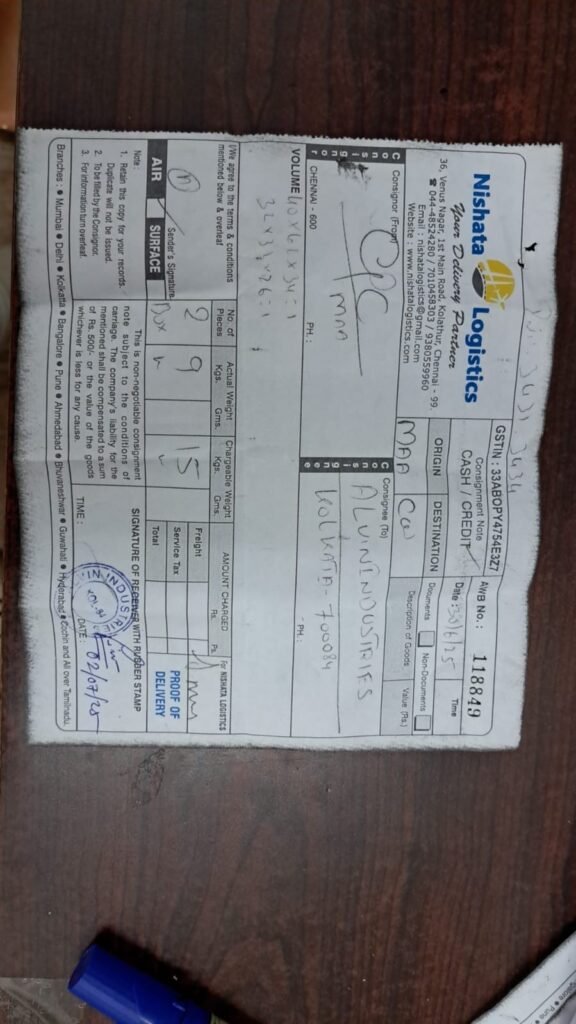 IN. 3431, 3434
Nishata Logistics
Your Delivery Partner
36, Venus Nagar, 1st Main Road, Kolathur, Chennai - 99.
☎ 044-48524280 / 7010458303 / 9380559960
Email : nishatalogistics@gmail.com
Website : www.nishatalogistics.com
GSTIN : 33ABOPY4754E3Z7
Consignment Note
CASH / CREDIT
AWB No. : 118849
Date : 30/6/25
Time
ORIGIN
DESTINATION
MAA
CCU
Documents
Non-Documents
Description of Goods
Value (Rs.)
Consignor
Consignor (From)
CPC
MAA
CHENNAI - 600
PH. :
Consignee
Consignee (To)
ALVIN ENDUSTRIES
KOLKATA - 700084
PH. :
VOLUME 40x62x34=1
32x32x26=1
I/We agree to the terms & conditions
mentioned below & overleaf
Sender's Signature
No. of Pieces
Actual Weight
Kgs. Gms.
Chargeable Weight
Kgs. Gms.
AMOUNT CHARGED
Rs. Ps.
2
Box
9
15
Freight
Service Tax
Total
For NISHATA LOGISTICS
PROOF OF
DELIVERY
AIR
SURFACE
Note :
1. Retain this copy for your records.
Duplicate will not be issued.
2. To be filled by the Consignor.
3. For information turn overleaf.
This is non-negotiable consignment
note subject to the conditions of
carriage. The company's liability for the
mentioned shall be compensated to a sum
of Rs. 500/- or the value of the goods
whichever is less for any cause.
SIGNATURE OF RECEIVER WITH RUBBER STAMP
TIME :
DATE : 02/07/25
Branches : ● Mumbai ● Delhi ● Kolkatta ● Bangalore ● Pune ● Ahmedabad ● Bhuvaneshwar ● Guwahati ● Hyderabad ● Cochin and All over Tamilnadu.